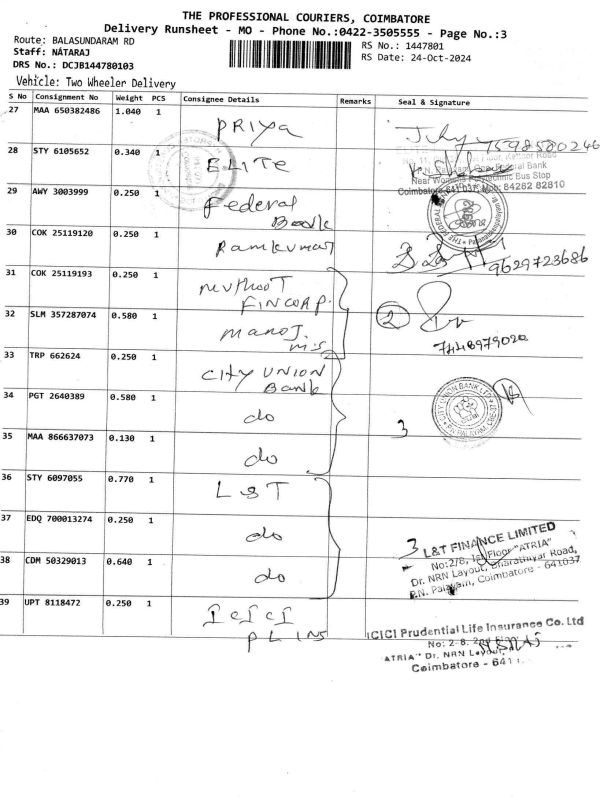 THE PROFESSIONAL COURIERS, COIMBATORE
Delivery Runsheet - MO - Phone No.:0422-3505555 - Page No.:3
Route: BALASUNDARAM RD
RS No.: 1447801
Staff: NATARAJ
RS Date: 24-Oct-2024
DRS No.: DCJB144780103
Vehicle: Two Wheeler Delivery
S No Consignment No Weight PCS Consignee Details Remarks Seal & Signature
27 MAA 650382486 1.040 1 PRIYA 7598580246
28 STY 6105652 0.340 1 ELITE
Floor, Road
Bank
Near Women's Polytechnic Bus Stop
Coimbatore-641 037. Mob: 84282 82810
29 AWY 3003999 0.250 1 Federal Bank
THE FEDERAL BANK
30 COK 25119120 0.250 1 Ramkumar 9629723686
31 COK 25119193 0.250 1 muthooT FINCORP.
32 SLM 357287074 0.580 1 manoj. m.s 2
7448979020
33 TRP 662624 0.250 1 CITY UNION Bank
34 PGT 2640389 0.580 1 do 3
CITY UNION BANK LTD
35 MAA 866637073 0.130 1 do
36 STY 6097055 0.770 1 L&T
37 EDQ 700013274 0.250 1 do 3
L&T FINANCE LIMITED
No:2/8, Ist Floor "ATRIA"
Dr. NRN Layout, Bharathiyar Road,
P.N. Palayam, Coimbatore - 641037
38 CDM 50329013 0.640 1 do
39 UPT 8118472 0.250 1 IcIcI PL INS
ICICI Prudential Life Insurance Co. Ltd
No: 2-8, 2nd
"ATRIA" Dr. NRN Layout,
Coimbatore - 641